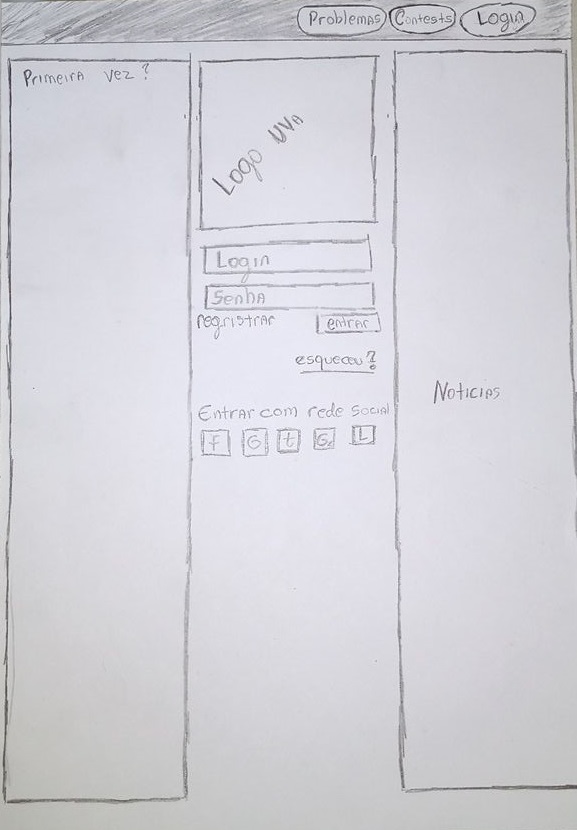 Problemas Contests Login
Primeira vez?
Logo UVA
Login
Senha
registrar entrar
esqueceu?
Entrar com rede social
f G t G L
Noticias